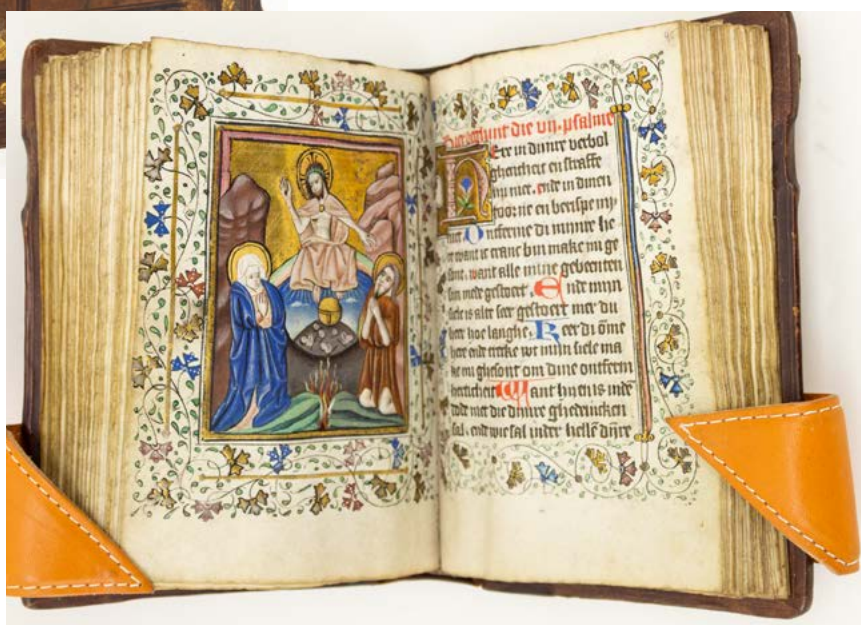 Hier beghint die vij. psalme
HEre in dinre verbol
ghentheit en straffe
mi niet. ende in dinen
toorne en berispe mi
niet Ontferme di minre he
re want ic cranc bin make mi ge
sont, want alle mine gebeenten
sijn mede gestoert. Ende mijn
siele is alte seer gestoert mer du
heer hoe langhe. Keer di ōme
here ende trecke wt mijn siele ma
ke mi ghesont om dine ontferm
herticheit Want hi en is inde
dode niet die dijnre ghedincken
sal. ende wie sal inder hellē dijre